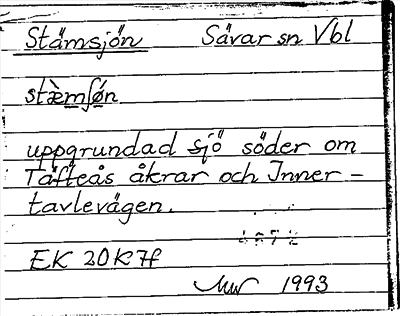 Stämsjön Sävar sn Vbl
stæ̀mʃø̀n
uppgrundad sjö söder om
Täfteås åkrar och Inner-
tavlevägen.
EK 20K7f
1993